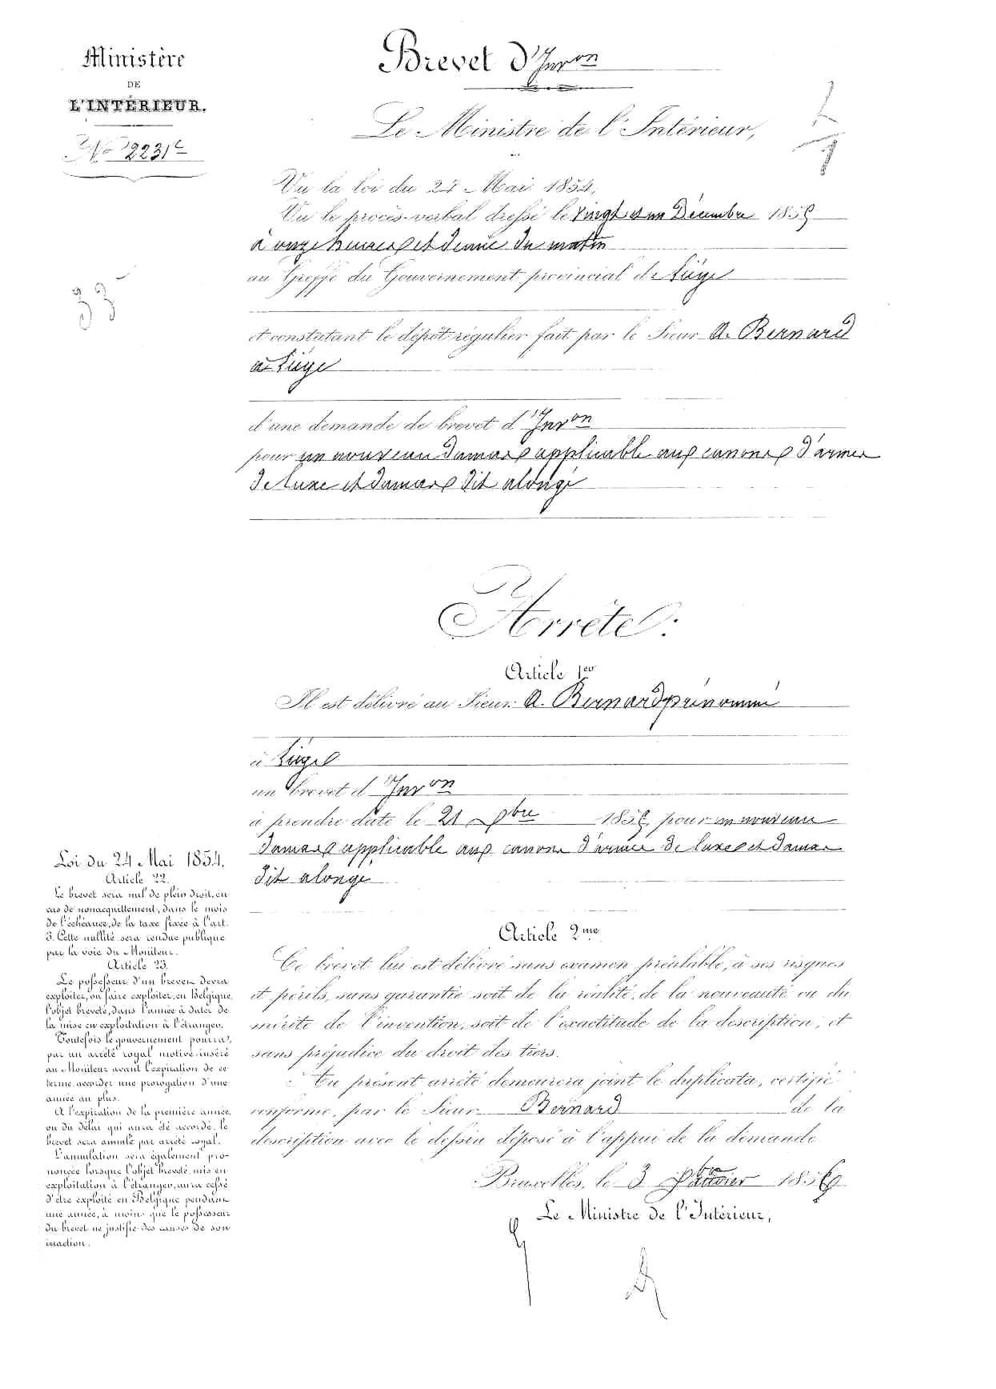 Ministère
DE
L'INTÉRIEUR.
No 2231c
33
Brevet d'Invon
Le Ministre de l'Intérieur,
Vu la loi du 24 Mai 1854,
Vu le procès-verbal dressé le vingt et un Décembre 1855
à onze heures et demie du matin
au Greffe du Gouvernement provincial de Liége
et constatant le dépôt régulier fait par le Sieur A. Bernard
à Liége
d'une demande de brevet d'Invon
pour un nouveau damas applicable aux canons d'armes
de luxe et damas dit alongé
Arrête:
Article 1er
Il est délivré au Sieur A. Bernard prénommé
à Liége
un brevet d'Invon
à prendre date le 21 Xbre 1855 pour un nouveau
damas applicable aux canons d'armes de luxe et damas
dit alongé
Article 2me
Ce brevet lui est délivré sans examen préalable, à ses risques
et périls, sans garantie soit de la réalité, de la nouveauté ou du
mérite de l'invention, soit de l'exactitude de la description, et
sans préjudice du droit des tiers.
Au présent arrêté demeurera joint le duplicata, certifié
conforme, par le Sieur Bernard de la
description avec le dessin déposé à l'appui de la demande
Bruxelles, le 3 Janvier 1856
Le Ministre de l'Intérieur,
Loi du 24 Mai 1854.
Article 22.
Le brevet sera nul de plein droit, en
cas de nonacquittement, dans le mois
de l'échéance, de la taxe fixée à l'art.
3. Cette nullité sera rendue publique
par la voie du Moniteur.
Article 23.
Le possesseur d'un brevet devra
exploiter, ou faire exploiter, en Belgique,
l'objet breveté, dans l'année à dater de
la mise en exploitation à l'étranger.
Toutefois le gouvernement pourra,
par un arrêté royal motivé inséré
au Moniteur avant l'expiration de ce
terme, accorder une prorogation d'une
année au plus.
A l'expiration de la première année,
ou du délai qui aura été accordé, le
brevet sera annulé par arrêté royal.
L'annulation sera également pro-
noncée lorsque l'objet breveté, mis en
exploitation à l'étranger, aura cessé
d'être exploité en Belgique pendant
une année, à moins que le possesseur
du brevet ne justifie des causes de son
inaction.